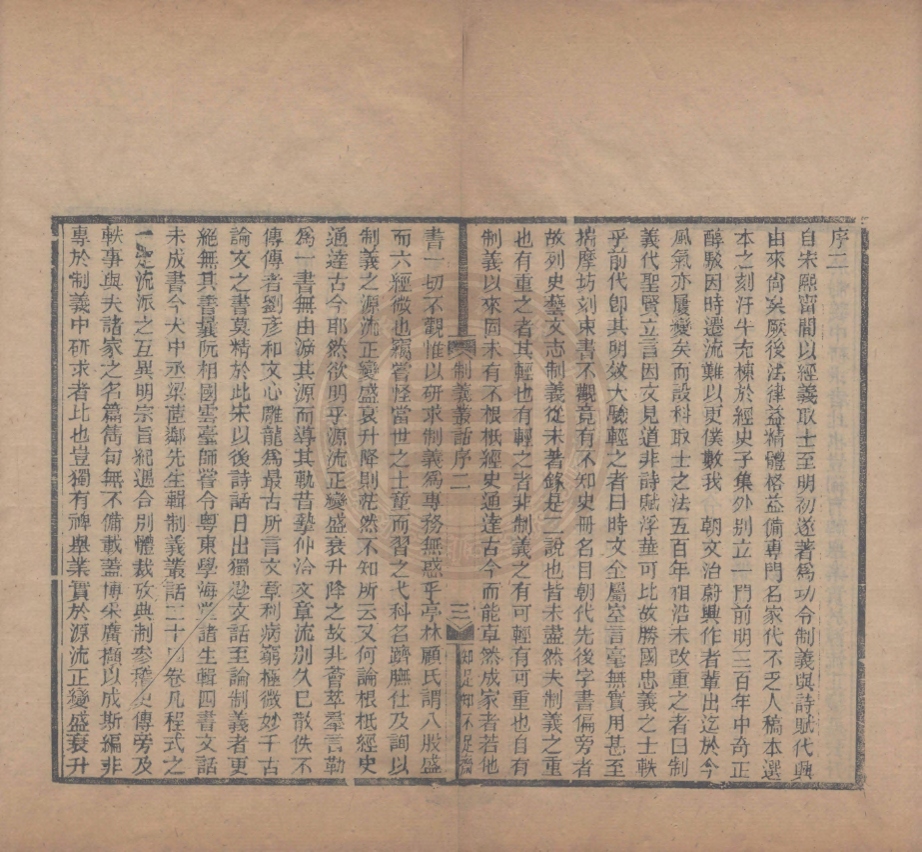 序二
自宋熙甯間以經義取士至明初遂著爲功令制義與詩賦代興
由來尙矣厥後法律益精體格益備專門名家代不乏人稿本選
本之刻汗牛充棟於經史子集外别立一門前明三百年中奇正
醇駁因時遷流難以更僕數我 朝文治蔚興作者輩出迄於今
風氣亦屢變矣而設科取士之法五百年相沿未改重之者曰制
義代聖賢立言因文見道非詩賦浮華可比故勝國忠義之士軼
乎前代卽其明效大驗輕之者曰時文全屬空言毫無實用甚至
揣摩坊刻束書不觀竟有不知史冊名目朝代先後字書偏旁者
故列史藝文志制義從未著錄是二說也皆未盡然夫制義之重
也有重之者其輕也有輕之者非制義之有可輕有可重也自有
制義以來固未有不根柢經史通達古今而能卓然成家者若他
制義叢話序二
三
知足知不足齋
書一切不觀惟以研求制義爲專務無惑乎亭林顧氏謂八股盛
而六經微也竊嘗怪當世之士童而習之弋科名躋膴仕及詢以
制義之源流正變盛衰升降則茫然不知所云又何論根柢經史
通達古今耶然欲明乎源流正變盛衰升降之故非薈萃羣言勒
爲一書無由溯其源而導其勒昔摯仲洽文章流别久已散佚不
傳傳者劉彥和文心雕龍爲最古所言文章利病窮極微妙千古
論文之書莫精於此宋以後詩話日出獨遜文話至論制義者更
絕無其書曩阮相國雲臺師嘗令粤東學海堂諸生輯四書文話
未成書今大中丞梁茝鄰先生輯制義叢話二十四卷凡程式之
一定流派之互異明宗旨紀遇合别體裁攷典制參稽史傳旁及
軼事與夫諸家之名篇雋句無不備載蓋博采廣擷以成斯編非
專於制義中研求者比也豈獨有裨舉業實於源流正變盛衰升